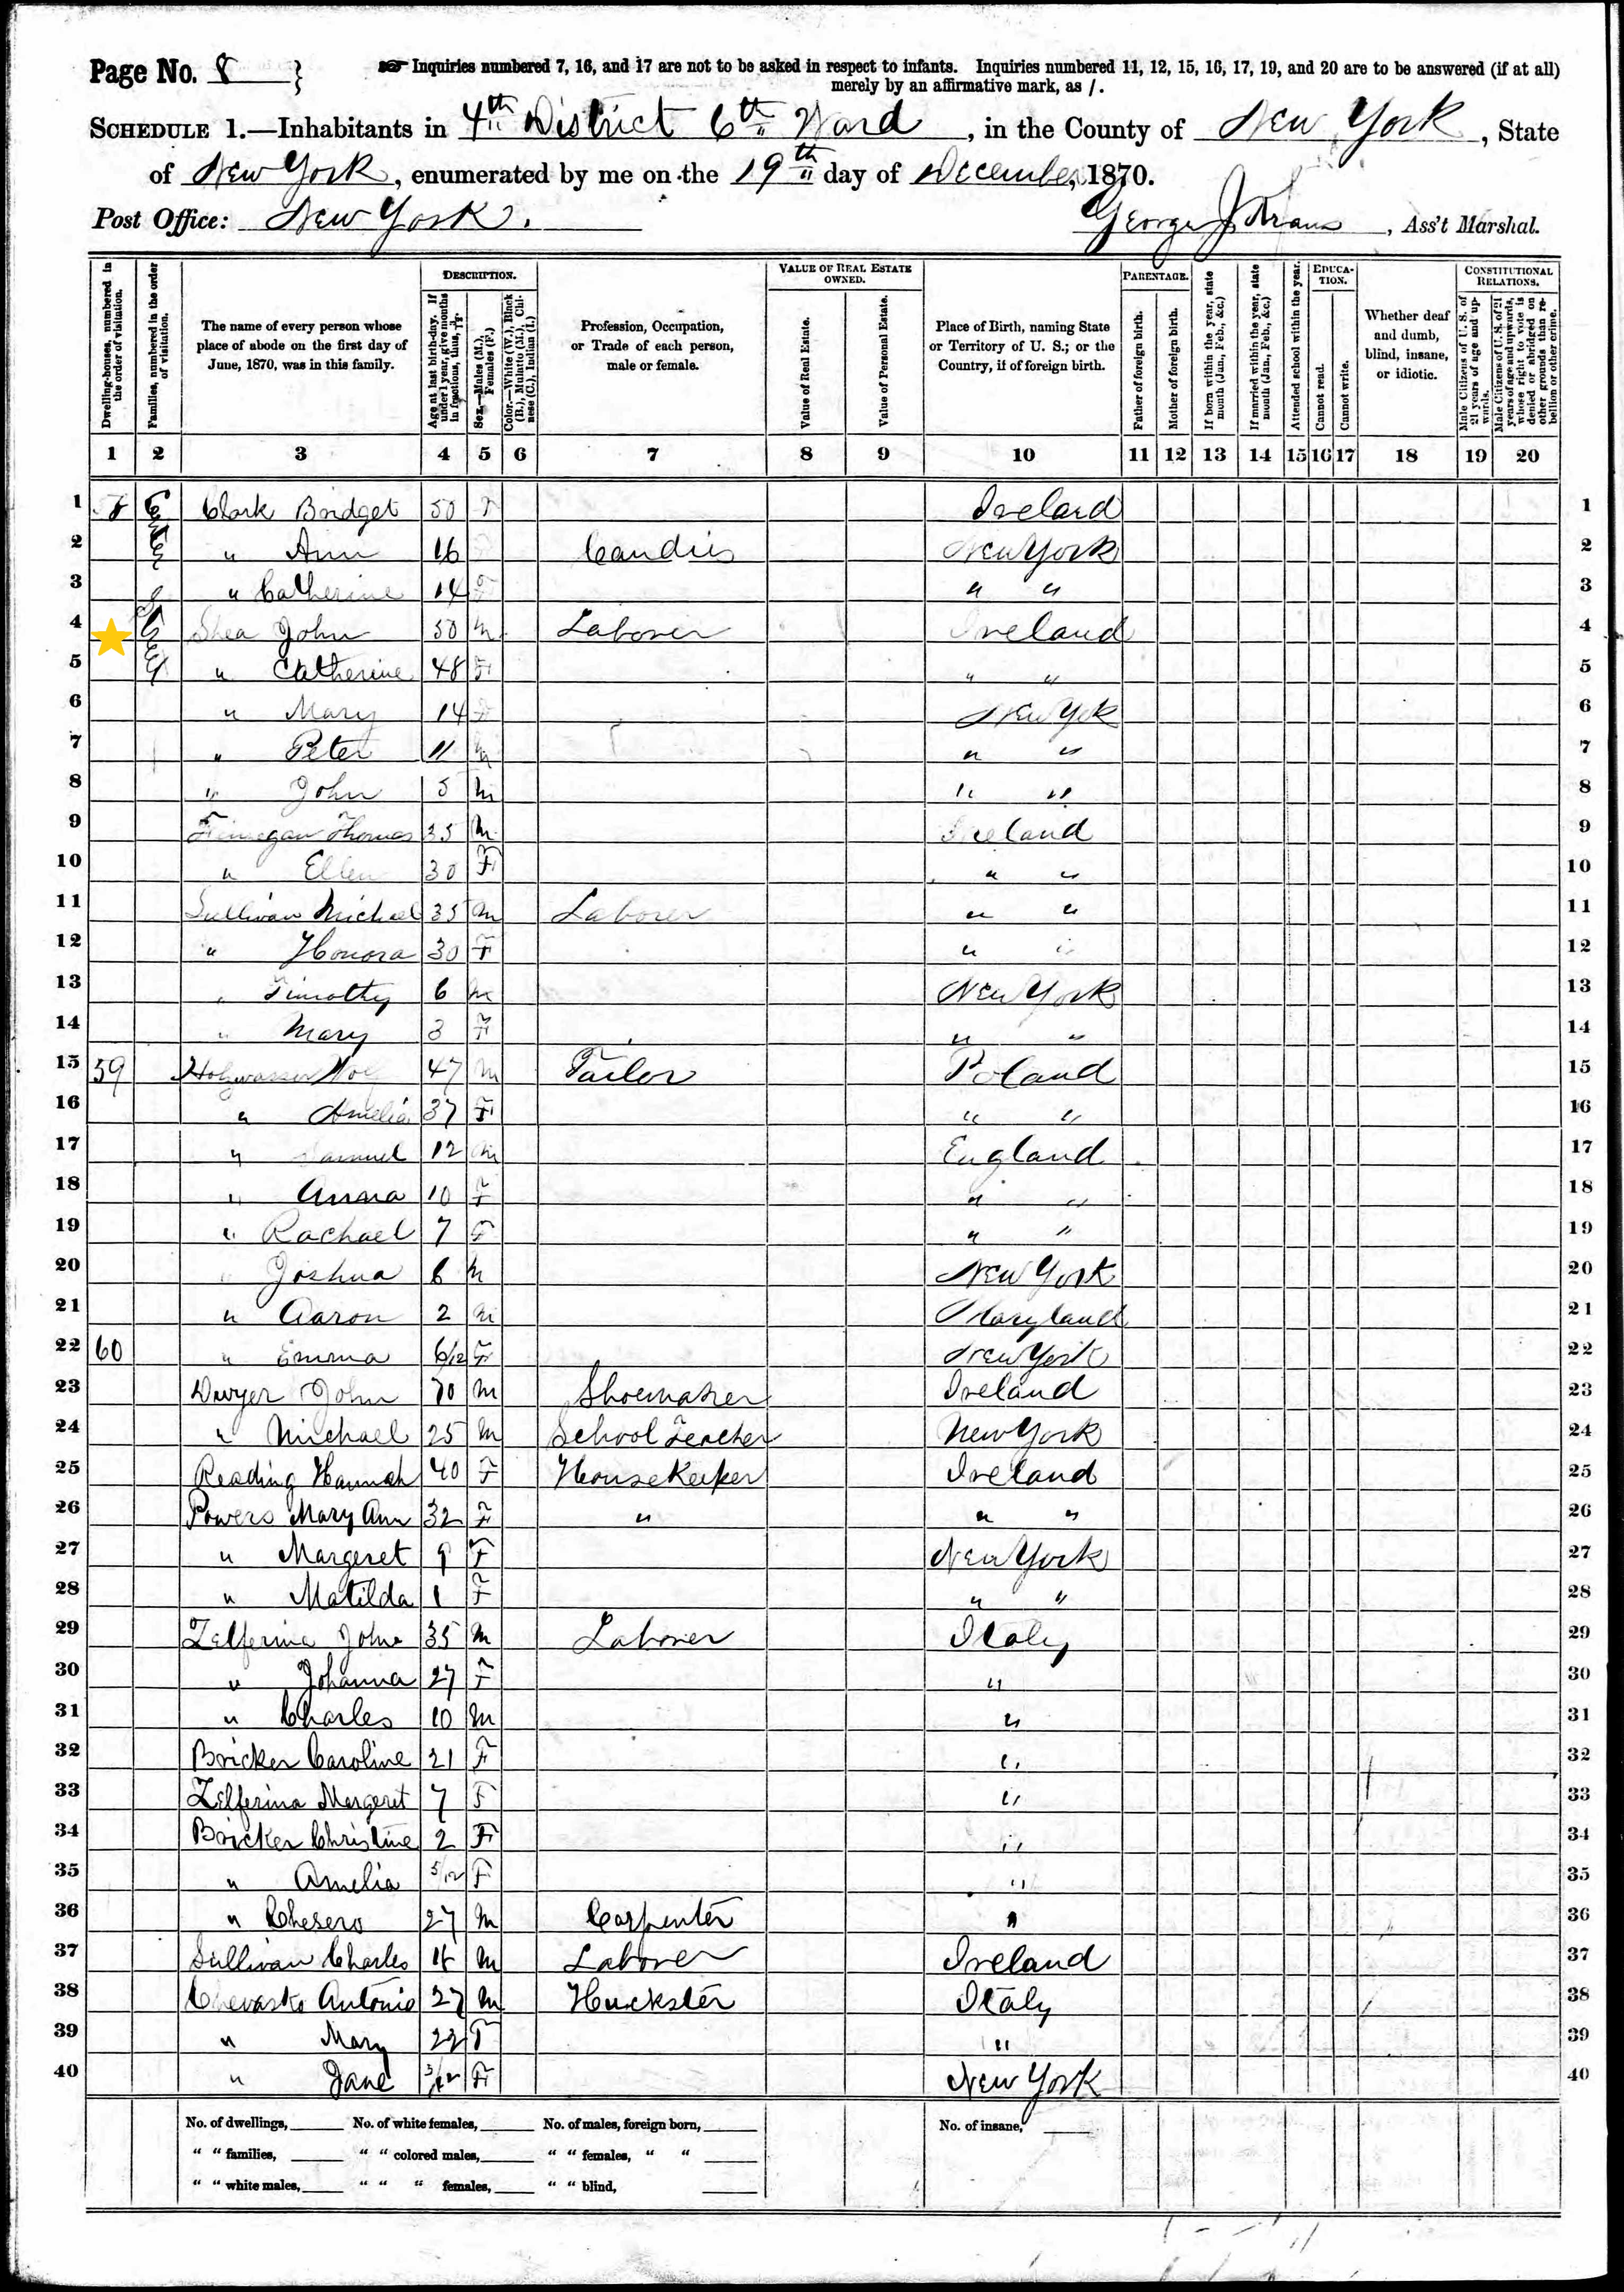 Page No. 8 } ☞ Inquiries numbered 7, 16, and 17 are not to be asked in respect to infants. Inquiries numbered 11, 12, 15, 16, 17, 19, and 20 are to be answered (if at all)
merely by an affirmative mark, as /.
SCHEDULE 1.—Inhabitants in 4th District 6th Ward, in the County of New York, State
of New York, enumerated by me on the 19th day of December, 1870.
Post Office: New York. George J. , Ass't Marshal.
Dwelling-houses, numbered in the order of visitation.
Families, numbered in the order of visitation.
The name of every person whose place of abode on the first day of June, 1870, was in this family.
DESCRIPTION.
Age at last birth-day. If under 1 year, give months in fractions, thus,
Sex.—Males (M.), Females (F.)
Color.—White (W.), Black (B.), Mulatto (M.), Chinese (C.), Indian (I.)
Profession, Occupation, or Trade of each person, male or female.
VALUE OF REAL ESTATE OWNED.
Value of Real Estate.
Value of Personal Estate.
Place of Birth, naming State or Territory of U. S.; or the Country, if of foreign birth.
PARENTAGE.
Father of foreign birth.
Mother of foreign birth.
If born within the year, state month (Jan., Feb., &c.)
If married within the year, state month (Jan., Feb., &c.)
EDUCATION.
Attended school within the year.
Cannot read.
Cannot write.
Whether deaf and dumb, blind, insane, or idiotic.
CONSTITUTIONAL RELATIONS.
Male Citizens of U. S. of 21 years of age and upwards.
Male Citizens of U. S. of 21 years of age and upwards, whose right to vote is denied or abridged on other grounds than rebellion or other crime.
1 2 3 4 5 6 7 8 9 10 11 12 13 14 15 16 17 18 19 20
1 58 Clark Bridget 50 F Ireland 1
2 " Ann 16 Candies New York 2
3 " Catherine 14 F " " 3
4 Shea John 50 M Laborer Ireland 4
5 " Catherine 48 F " " 5
6 " Mary 14 F New York 6
7 " Peter 11 M " " 7
8 " John 5 M " " 8
9 Finnegan Thomas 35 M Ireland 9
10 " Ellen 30 F " " 10
11 Sullivan Michael 35 M Laborer " " 11
12 " Honora 30 F " " 12
13 " Timothy 6 M New York 13
14 " Mary 3 F " " 14
15 59 Holzwasser 47 M Tailor Poland 15
16 " Amelia 37 F " " 16
17 " Samuel 12 M England 17
18 " Anna 10 F " " 18
19 " Rachael 7 F " " 19
20 " Joshua 6 M New York 20
21 " Aaron 2 M Maryland 21
22 60 " Emma 6/12 F New York 22
23 Dwyer John 70 M Shoemaker Ireland 23
24 " Michael 25 M School Teacher New York 24
25 Reading Hannah 40 F House Keeper Ireland 25
26 Powers Mary Ann 32 F " " " 26
27 " Margeret 9 F New York 27
28 " Matilda 1 F " " 28
29 Zelferina John 35 M Laborer Italy 29
30 " Johanna 27 F " 30
31 " Charles 10 M " 31
32 Bricker Caroline 21 F " 32
33 Zelferina Margeret 7 F " 33
34 Bricker Christine 2 F " 34
35 " Amelia 5/12 F " 35
36 " Chesero 27 M Carpenter " 36
37 Sullivan Charles 18 M Laborer Ireland 37
38 Chevasko Antonio 27 M Huckster Italy 38
39 " Mary 22 F " 39
40 " Jane 3/12 F New York 40
No. of dwellings, No. of white females, No. of males, foreign born, No. of insane,
" " families, " " colored males, " " females, " "
" " white males, " " " females, " " blind,